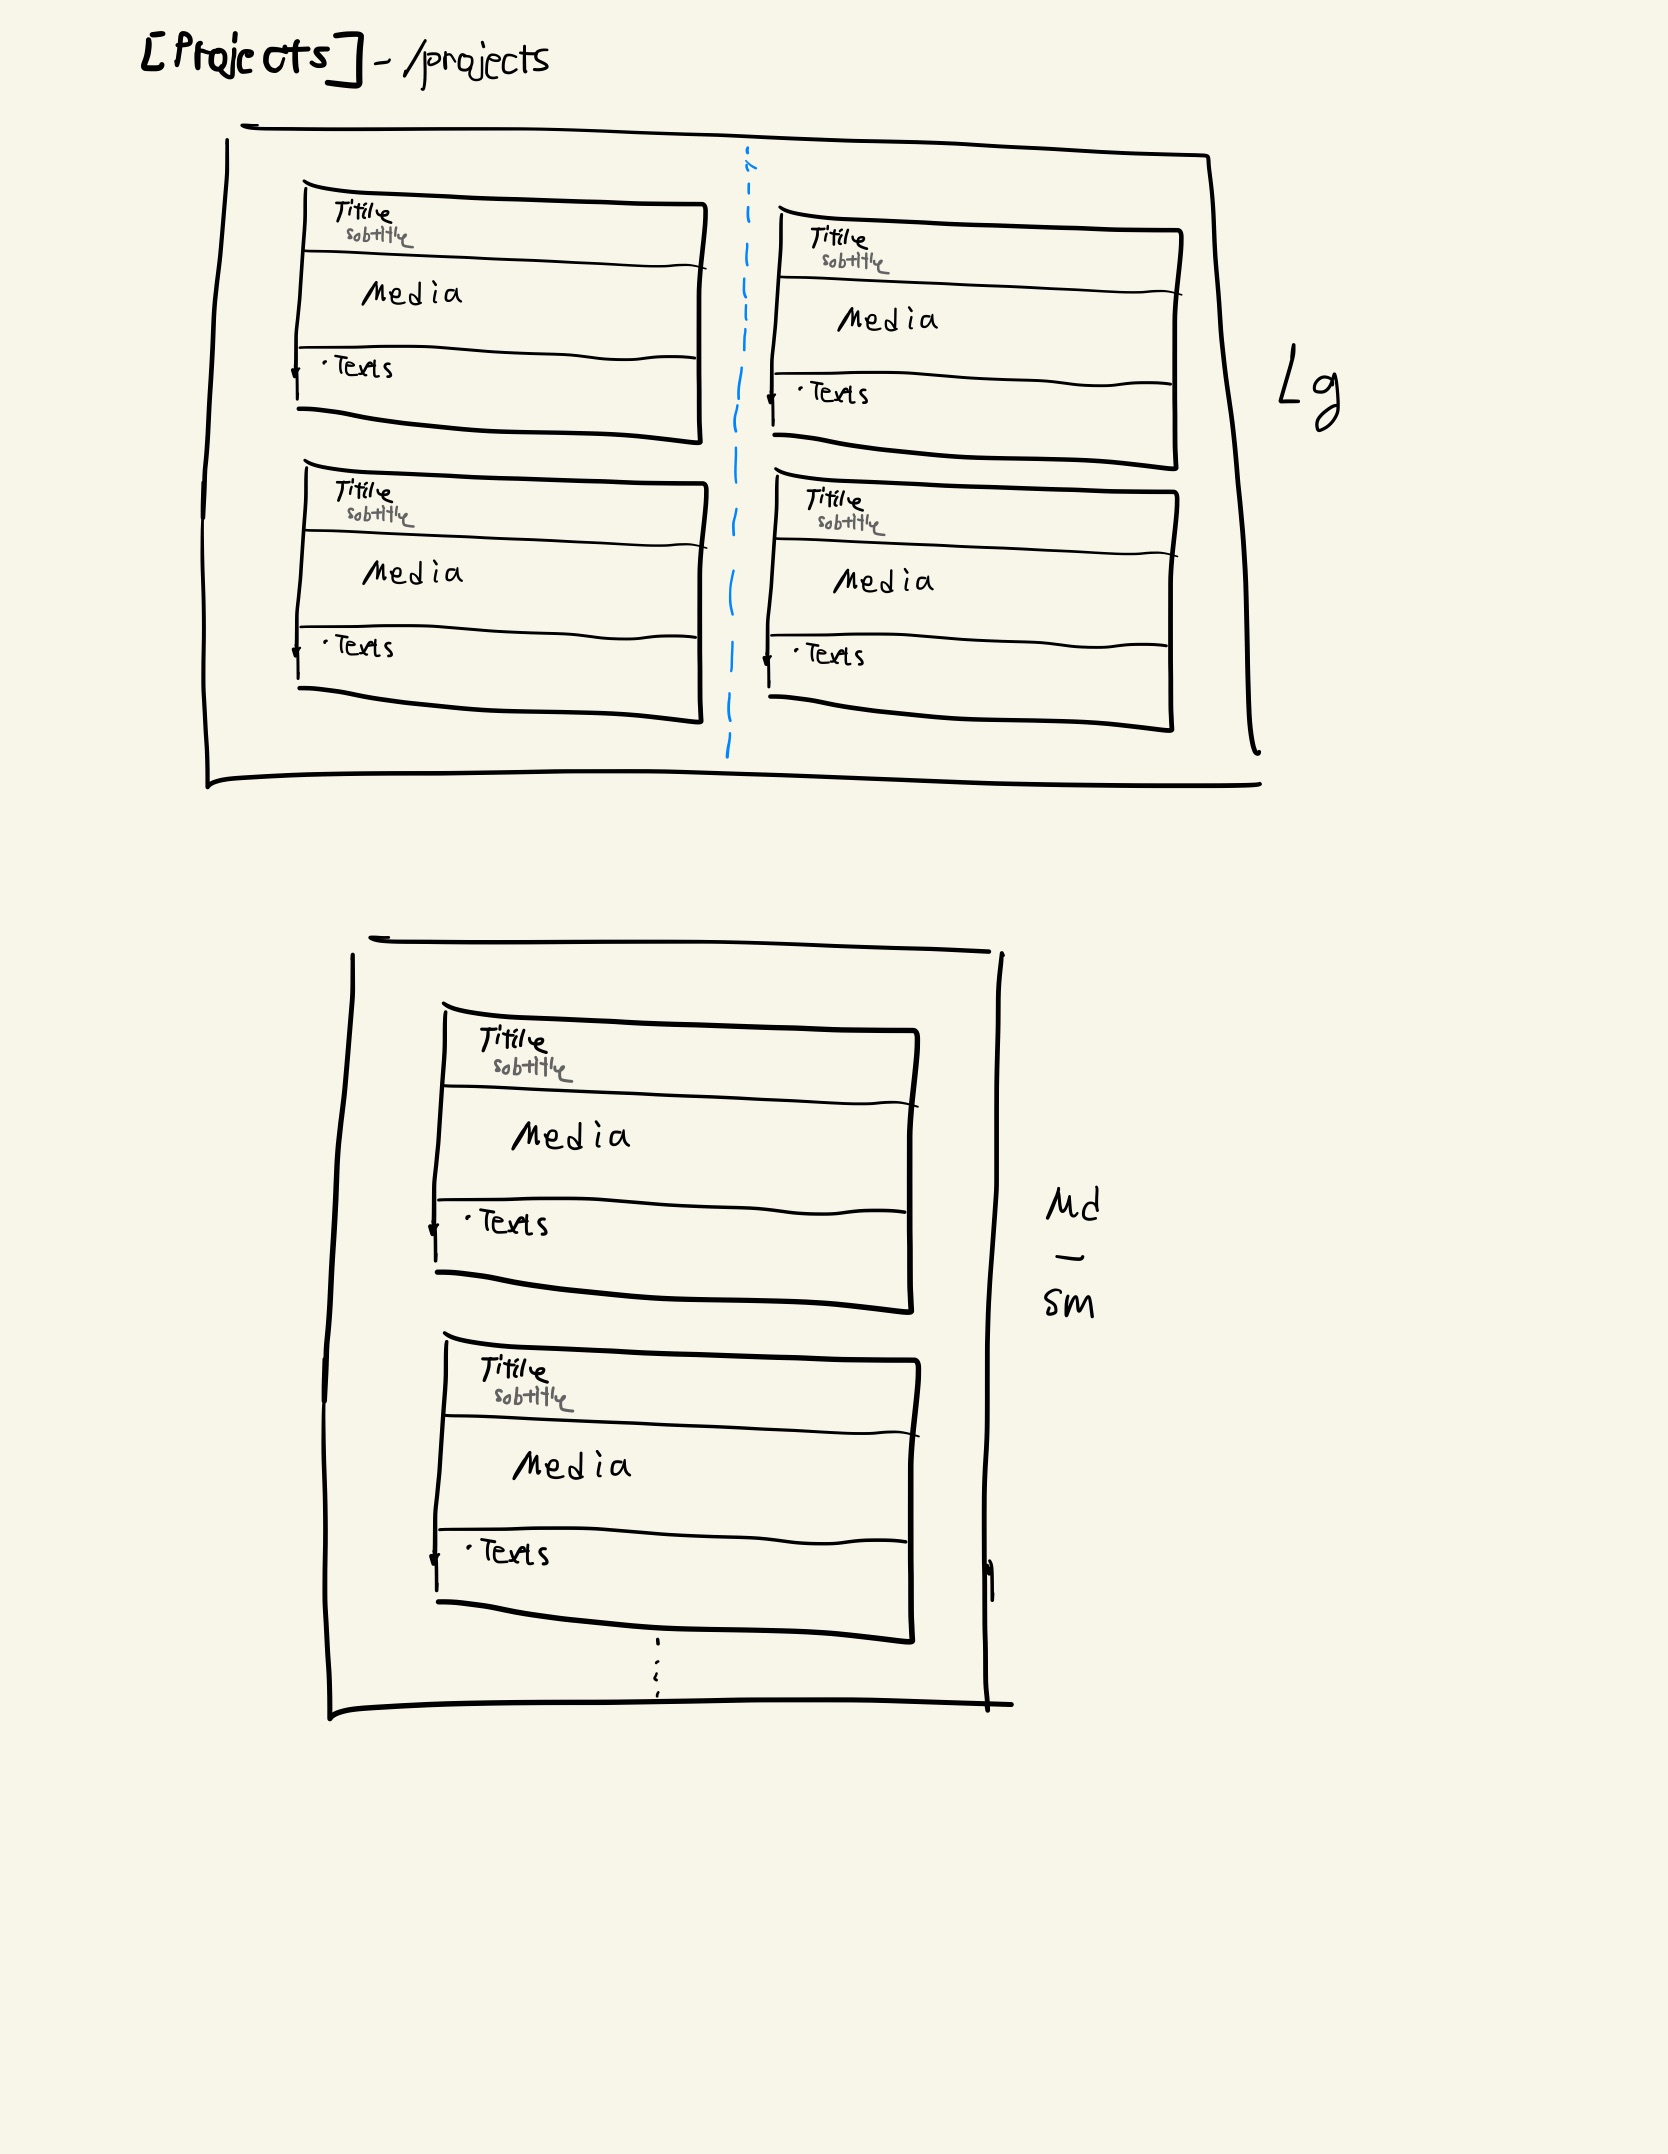 [Projects] - /projects
Titile
sobtitle
Media
· Texts
Titile
sobtitle
Media
· Texts
Lg
Titile
sobtitle
Media
· Texts
Titile
sobtitle
Media
· Texts
Titile
sobtitle
Media
· Texts
Md
-
sm
Titile
sobtitle
Media
· Texts